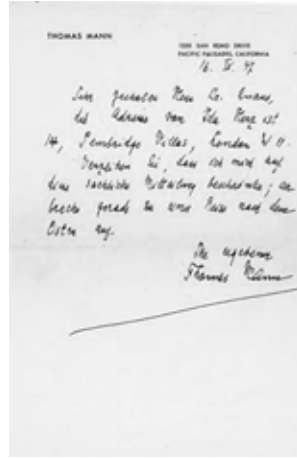 THOMAS MANN
1550 SAN REMO DRIVE
PACIFIC PALISADES, CALIFORNIA
16. IV. 47
Sehr geehrter Herr Dr. Evans,
die Adresse von Ida Herz ist
14, Pembridge Villas, London W 11.
Verzeihen Sie, dass ich mich auf
diese sachliche Mitteilung beschränke; ich
breche gerade zu einer Reise nach dem
Osten auf.
Ihr ergebener
Thomas Mann